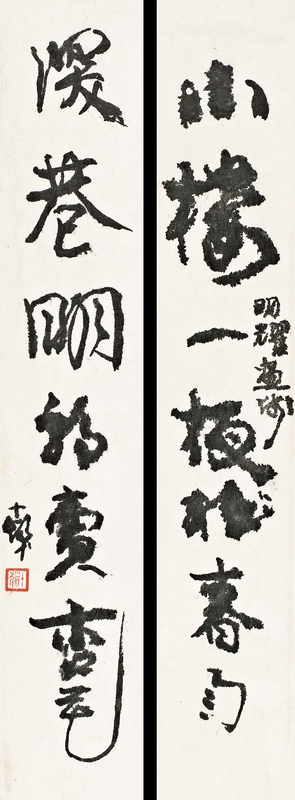 小樓一夜聽春雨
明耀畫師
深巷明朝賣杏花
十髮